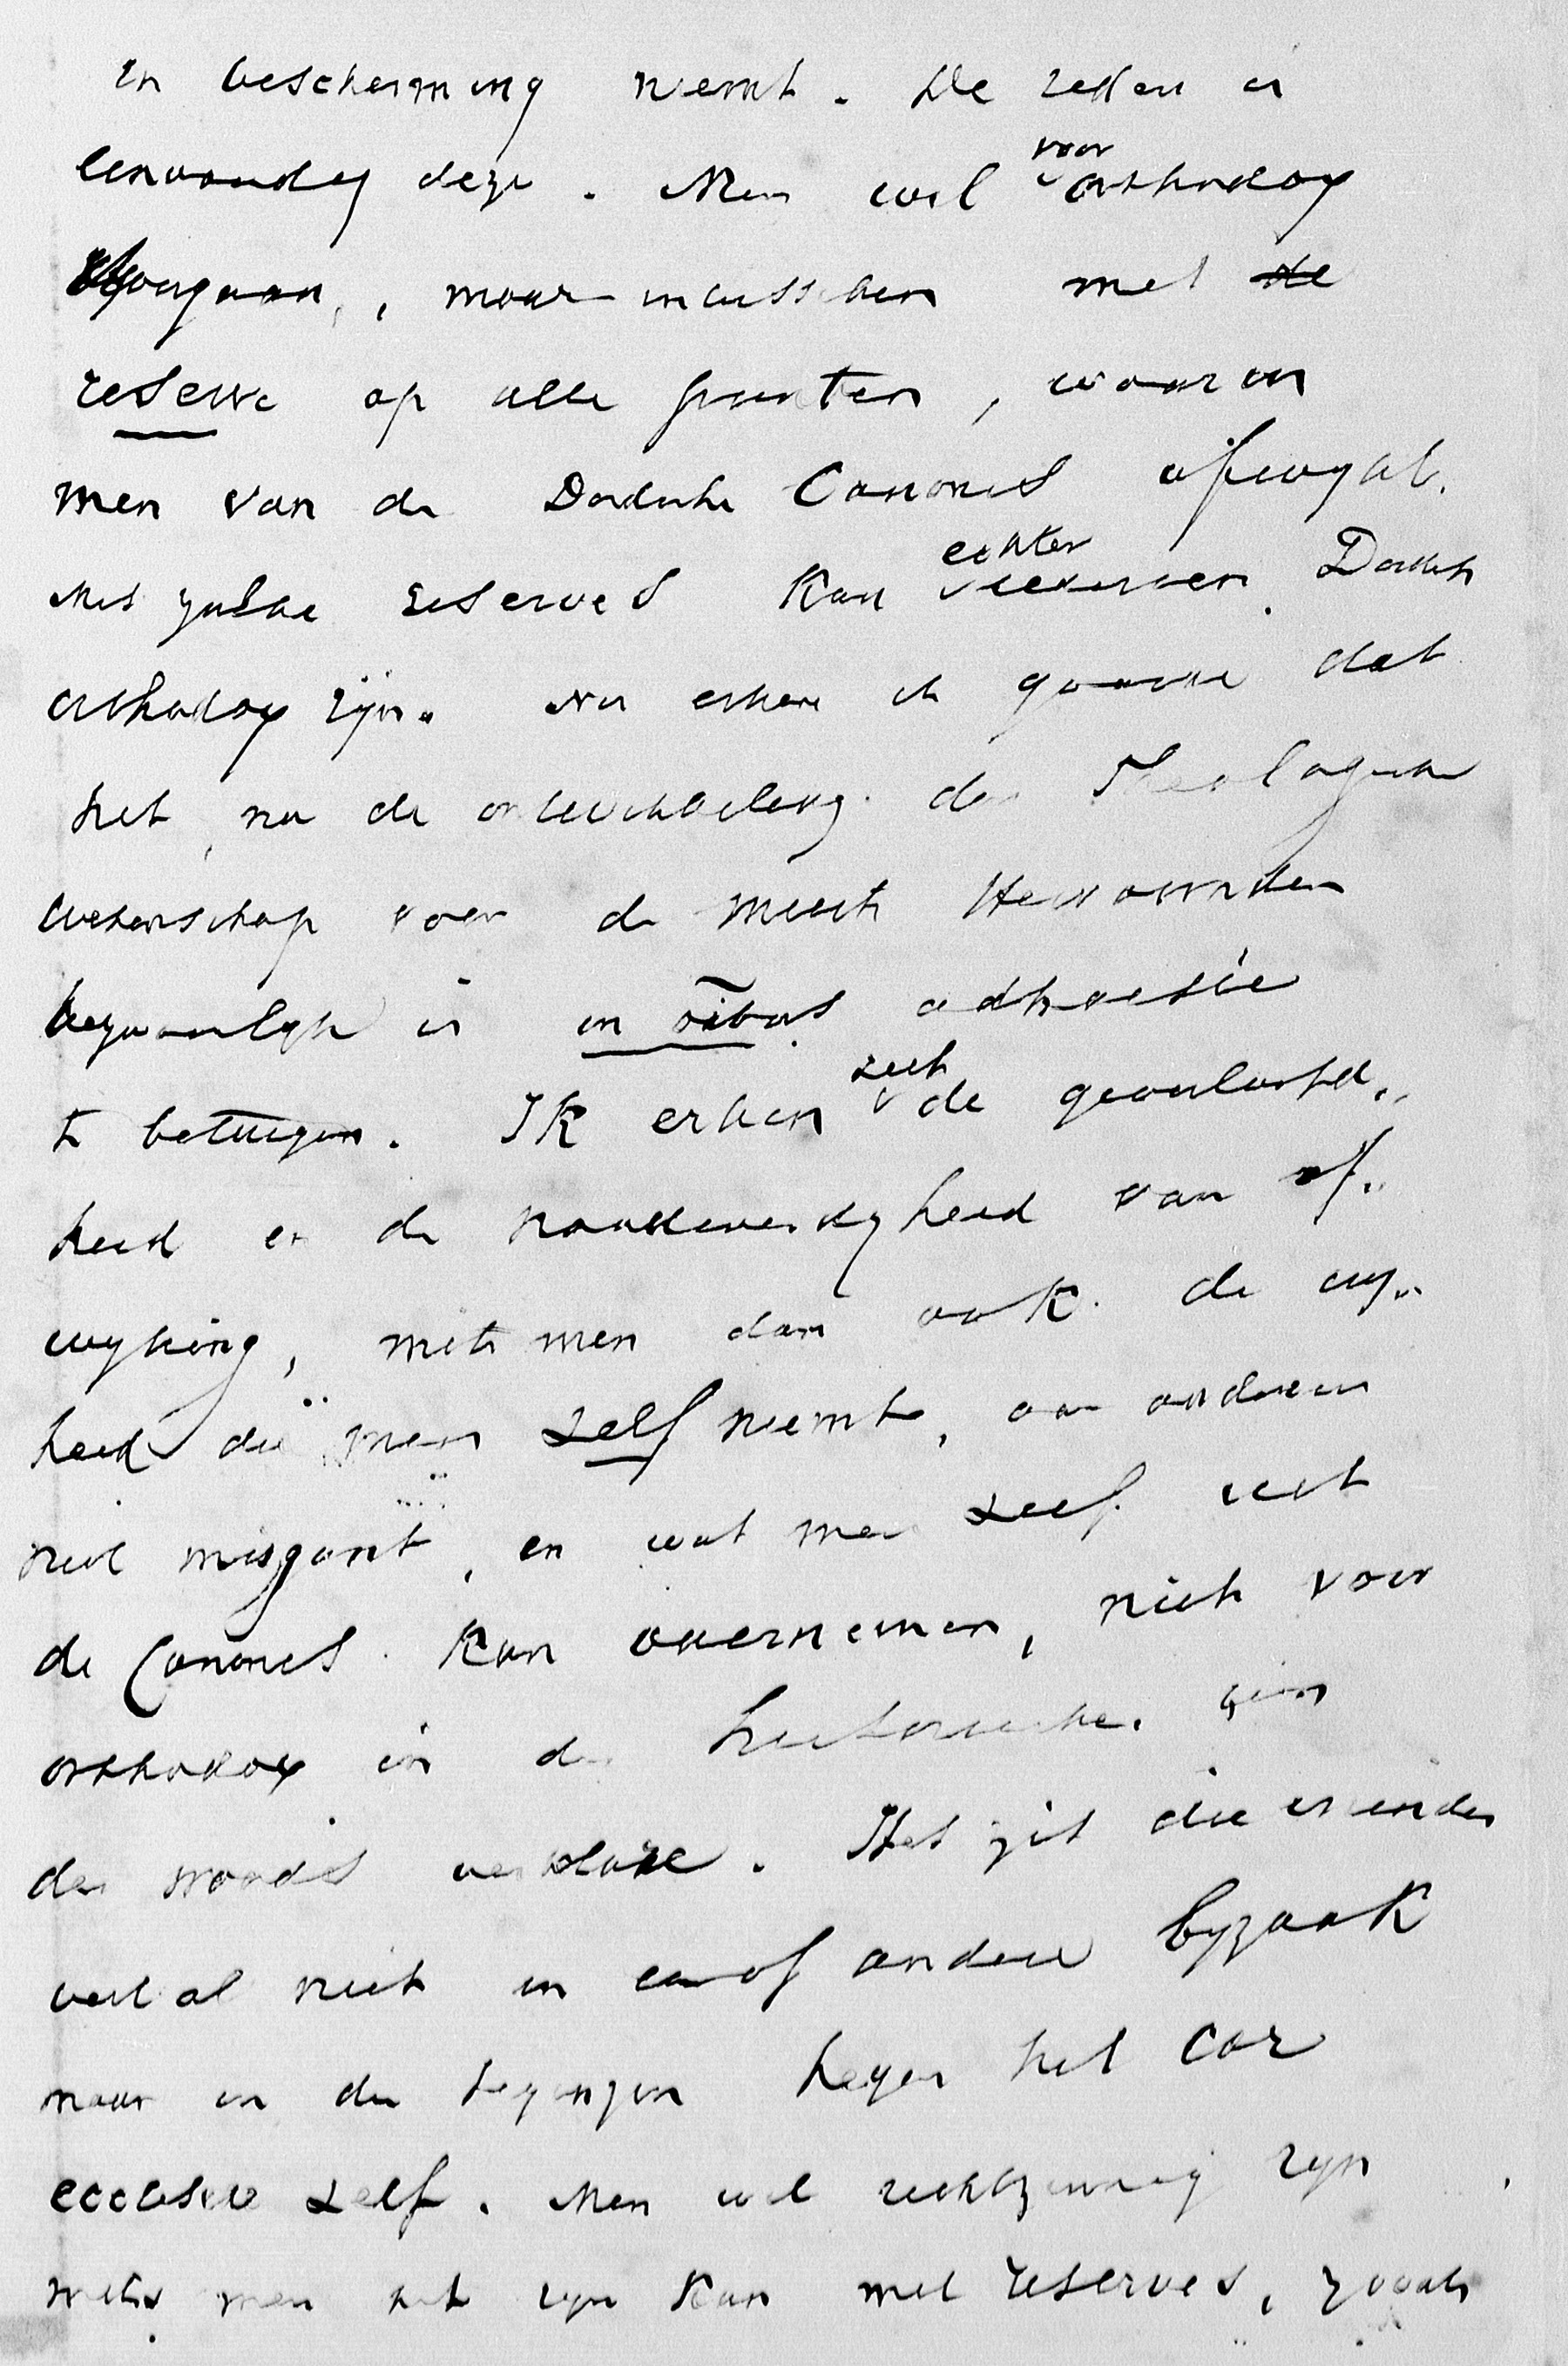 in bescherming neemt. De reden is
eenvoudig deze. Men wil voor orthodox
doorgaan, maar intusschen met de
reserve op alle punten, waarin
men van de Dordsche Canones afwykt.
Met zulke reserves kan echter iedereen Dordsch
orthodox zijn. Nu erken ik gaarne dat
het, na de ontwikkeling der Theologische
wetenschap voor de meeste Hervormden
bezwaarlyk is in oībus adhaesie
te betuigen. Ik erken zelfs de geoorloofd„
heid en de noodwendigheid van af„
wyking, mits men dan ook de vry„
heid die men zelf neemt, aan anderen
niet misgunt, en wat men zelf uit
de Canones kan overnemen, niet voor
orthodox in de historische zin
des woords verklare. Het zit die vrienden
veelal niet in een of andere byzaak
maar in de tegenzin tegen het cor
ecclesiae zelf. Men wil rechtzinnig zyn
mits men het zyn kan met reserves, zooals